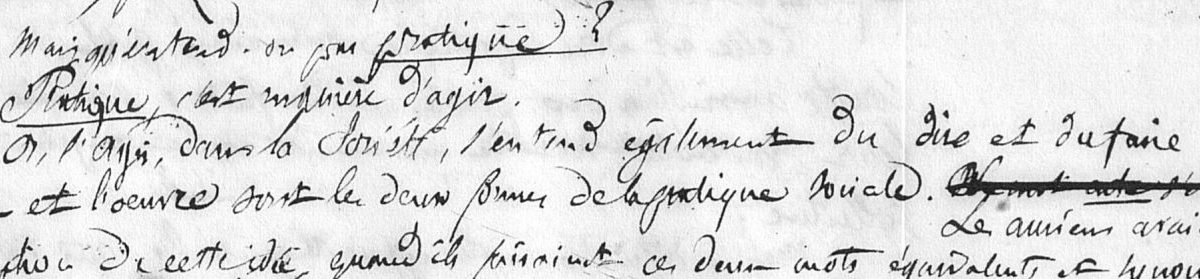 Mais qu'entend-on par pratique ?
Pratique, c'est manière d'agir.
Or, l'agir, dans la Société, s'entend également du dire et du faire
- et l'oeuvre sont les deux formes de la pratique sociale. Le mot acte s'
Les anciens avai
de cette idée, quand ils faisaient ces deux mots équivalents et